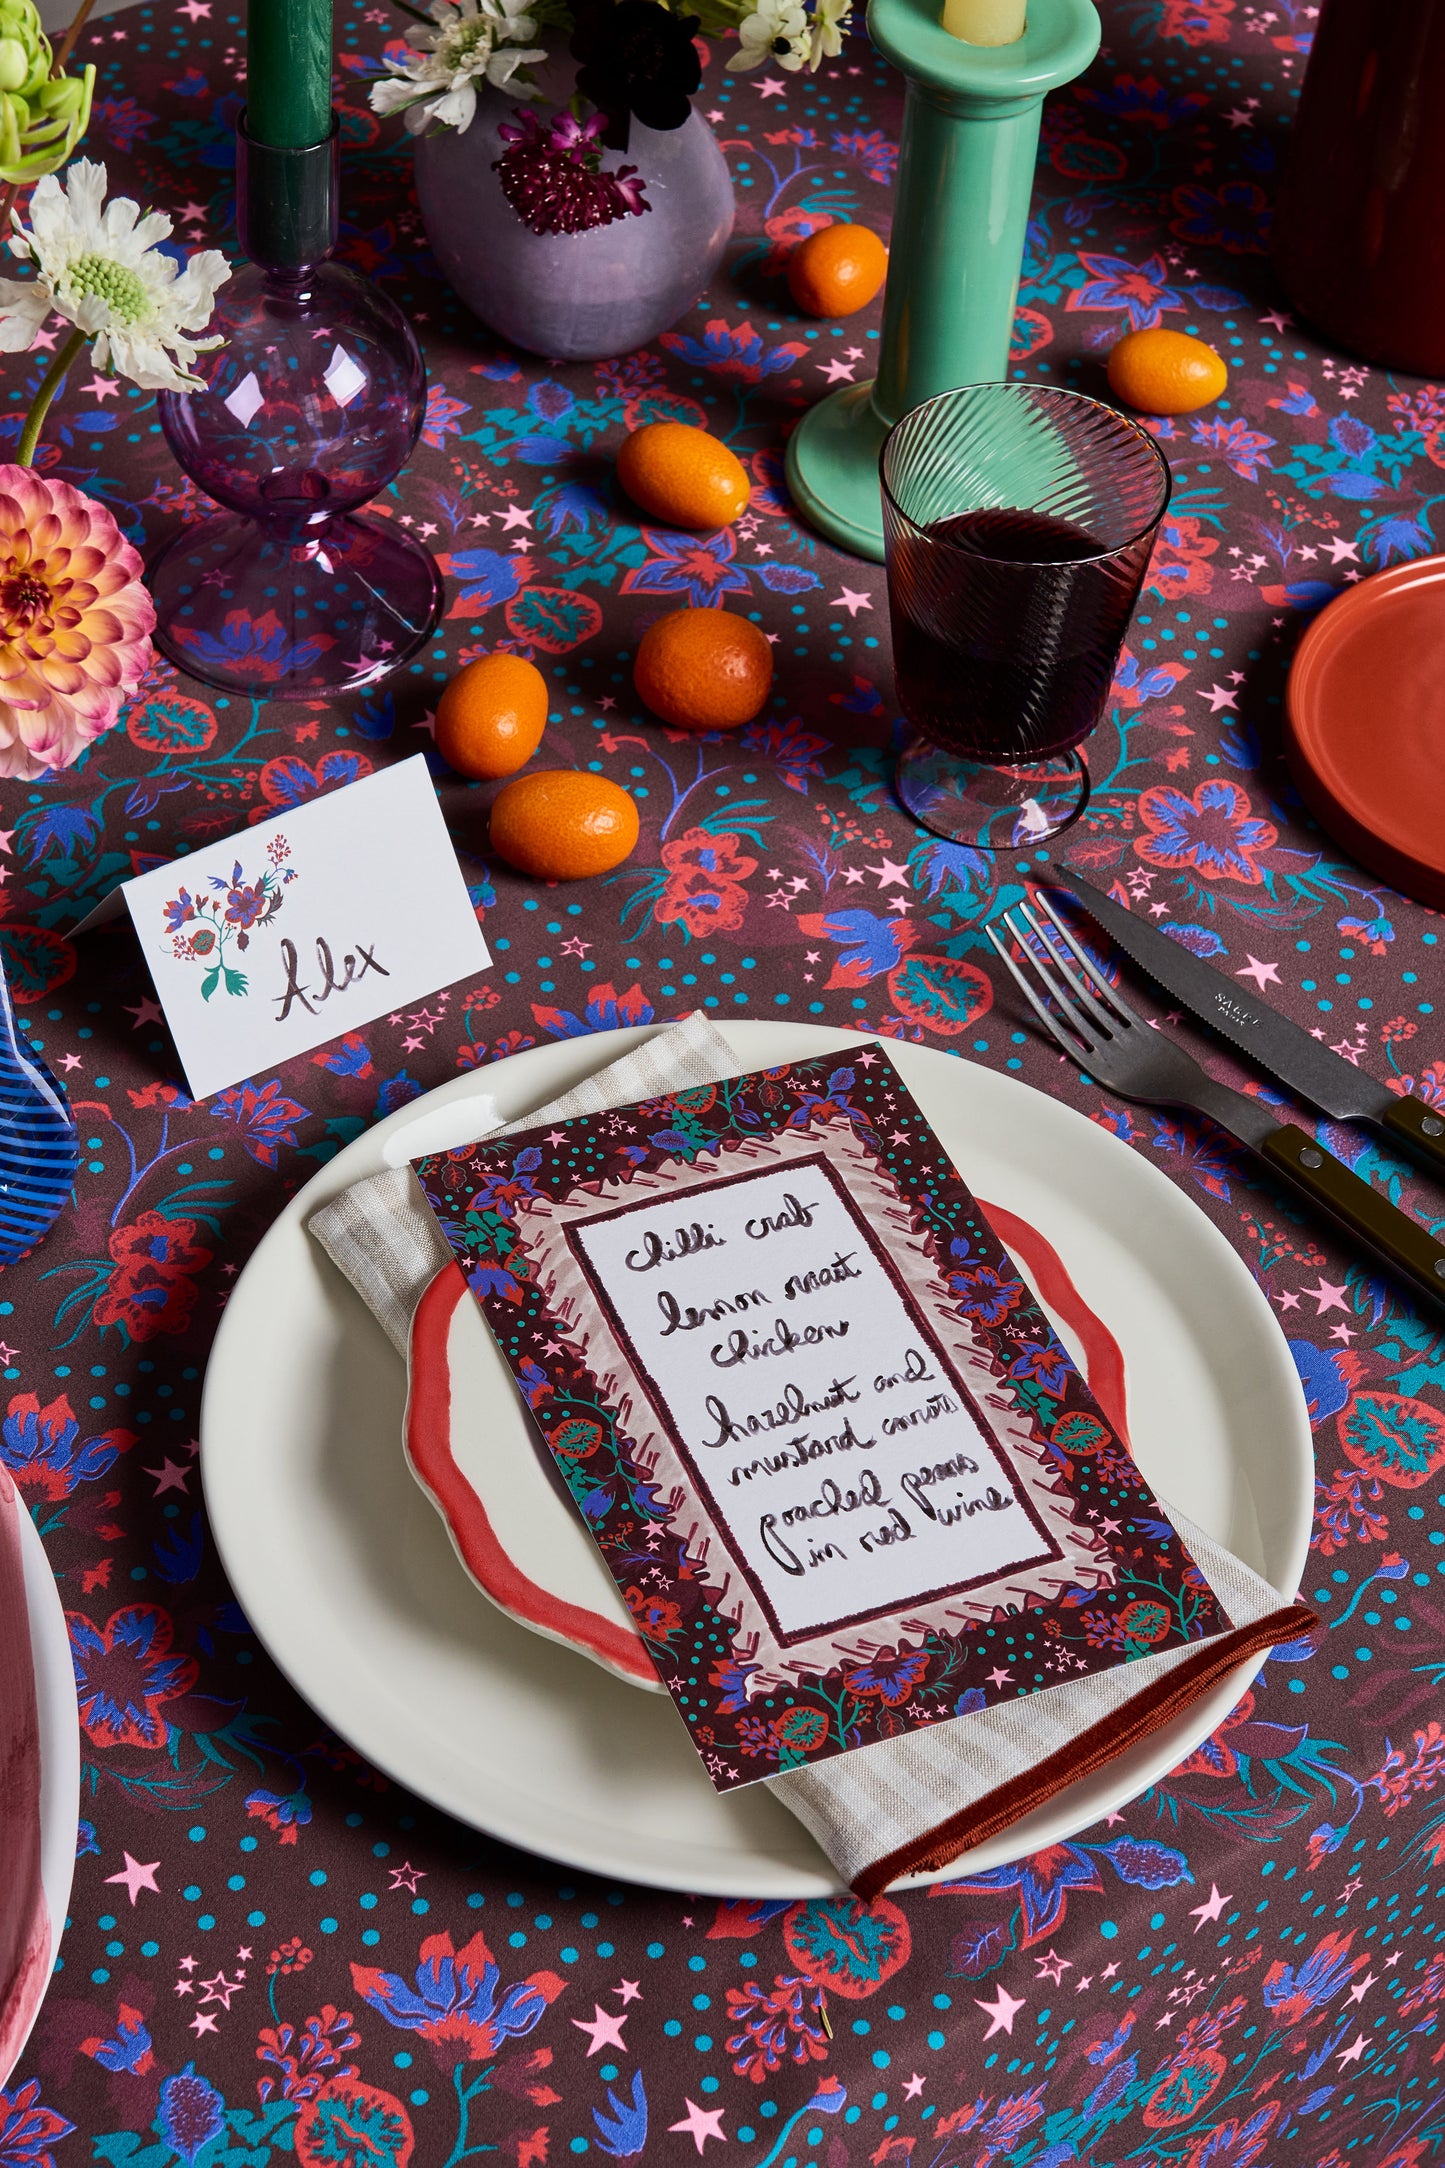 Alex
SABRE
chilli crab
lemon roast
chicken
hazelnut and
mustard carrots
poached pears
in red wine